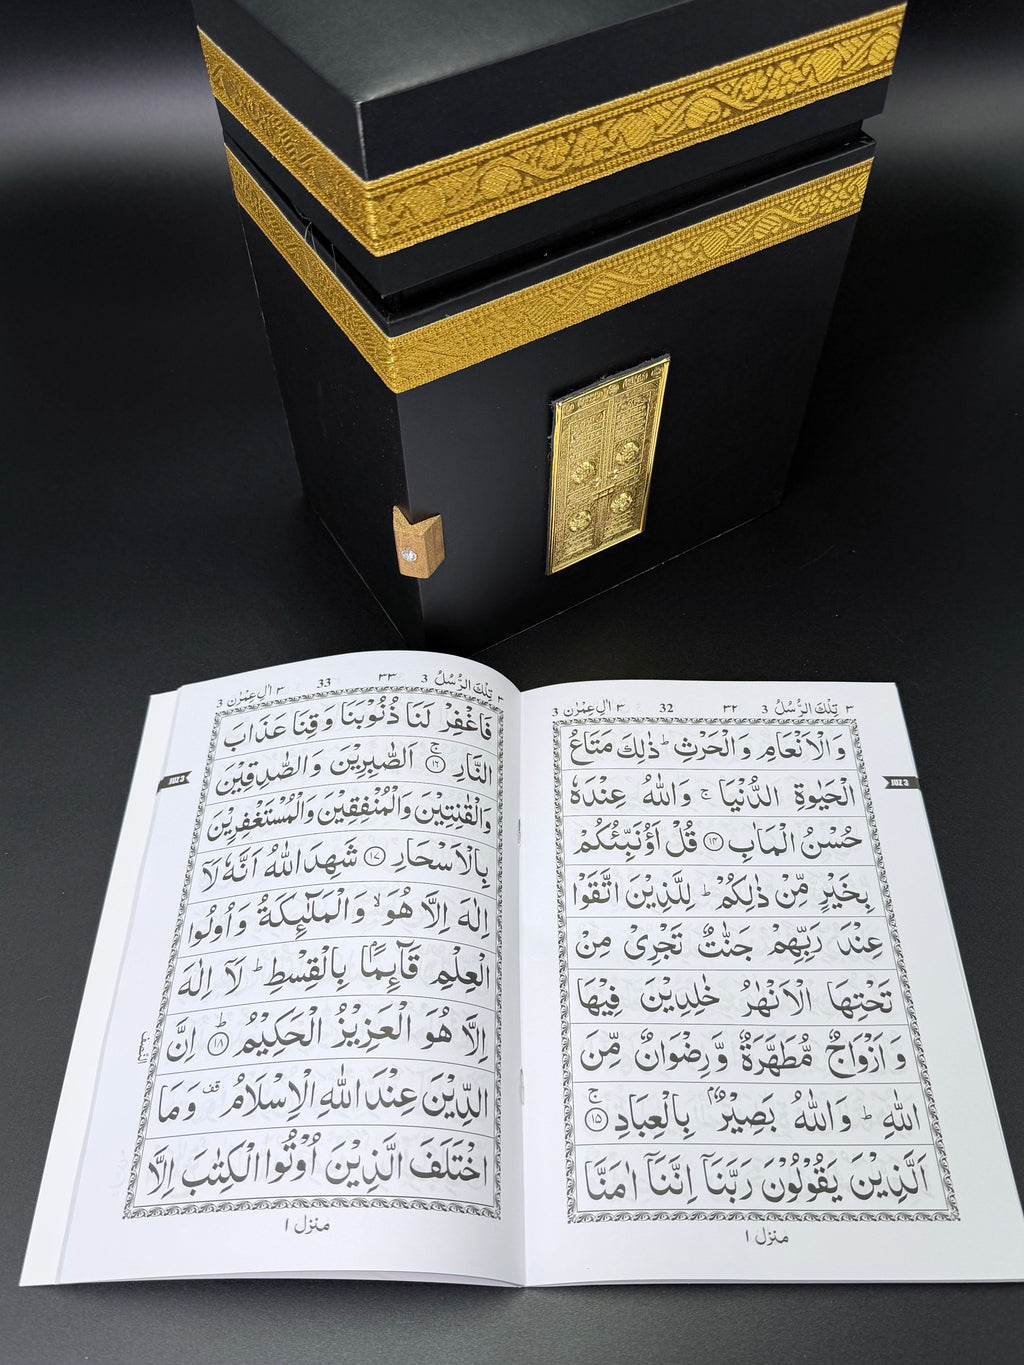 ٣ تِلْكَ الرُّسُلُ 3 ٣٢ 32 ٣ اٰلِ عِمْرٰن 3
وَالْاَنْعَامِ وَالْحَرْثِ ؕ ذٰلِكَ مَتَاعُ
الْحَيٰوةِ الدُّنْيَا ۚ وَاللّٰهُ عِنْدَهٗ
حُسْنُ الْمَاٰبِ ﴿۱۴﴾ قُلْ اَؤُنَبِّئُكُمْ
بِخَيْرٍ مِّنْ ذٰلِكُمْ ؕ لِلَّذِيْنَ اتَّقَوْا
عِنْدَ رَبِّهِمْ جَنّٰتٌ تَجْرِيْ مِنْ
تَحْتِهَا الْاَنْهٰرُ خٰلِدِيْنَ فِيْهَا
وَ اَزْوَاجٌ مُّطَهَّرَةٌ وَّرِضْوَانٌ مِّنَ
اللّٰهِ ؕ وَاللّٰهُ بَصِيْرٌۢ بِالْعِبَادِ ﴿۱۵﴾ ۚ
اَلَّذِيْنَ يَقُوْلُوْنَ رَبَّنَاۤ اِنَّنَاۤ اٰمَنَّا
منزل ١
JUZ 3
٣ تِلْكَ الرُّسُلُ 3 ٣٣ 33 ٣ اٰلِ عِمْرٰن 3
فَاغْفِرْ لَنَا ذُنُوْبَنَا وَقِنَا عَذَابَ
النَّارِ ﴿۱۶﴾ ۚ اَلصّٰبِرِيْنَ وَالصّٰدِقِيْنَ
وَالْقٰنِتِيْنَ وَالْمُنْفِقِيْنَ وَالْمُسْتَغْفِرِيْنَ
بِالْاَسْحَارِ ﴿۱۷﴾ شَهِدَ اللّٰهُ اَنَّهٗ لَاۤ
اِلٰهَ اِلَّا هُوَ ۙ وَالْمَلٰٓئِكَةُ وَاُولُوا
الْعِلْمِ قَآئِمًۢا بِالْقِسْطِ ؕ لَاۤ اِلٰهَ
اِلَّا هُوَ الْعَزِيْزُ الْحَكِيْمُ ﴿۱۸﴾ ؕ اِنَّ
الدِّيْنَ عِنْدَ اللّٰهِ الْاِسْلَامُ ۟ قف وَمَا
اخْتَلَفَ الَّذِيْنَ اُوْتُوا الْكِتٰبَ اِلَّا
منزل ١
JUZ 3
النصف